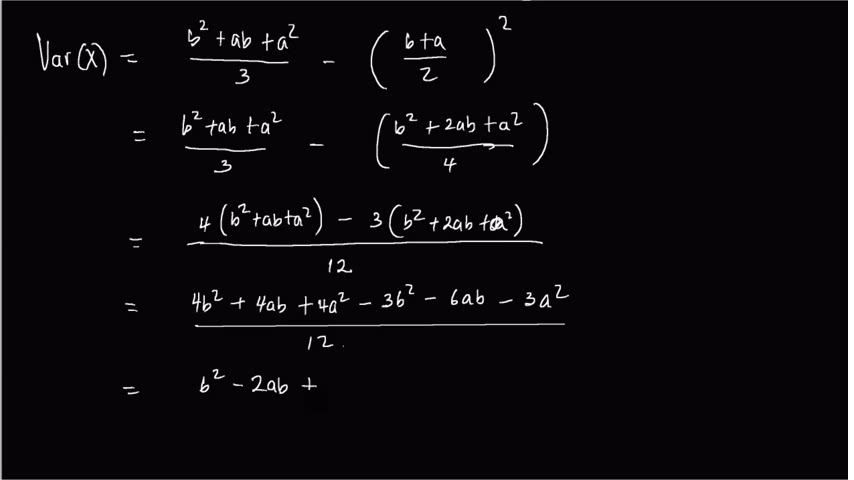 Var(X) = (b² + ab + a²)/3 - ((b+a)/2)²
= (b² + ab + a²)/3 - ((b² + 2ab + a²)/4)
= (4(b² + ab + a²) - 3(b² + 2ab + a²))/12
= (4b² + 4ab + 4a² - 3b² - 6ab - 3a²)/12
= b² - 2ab +